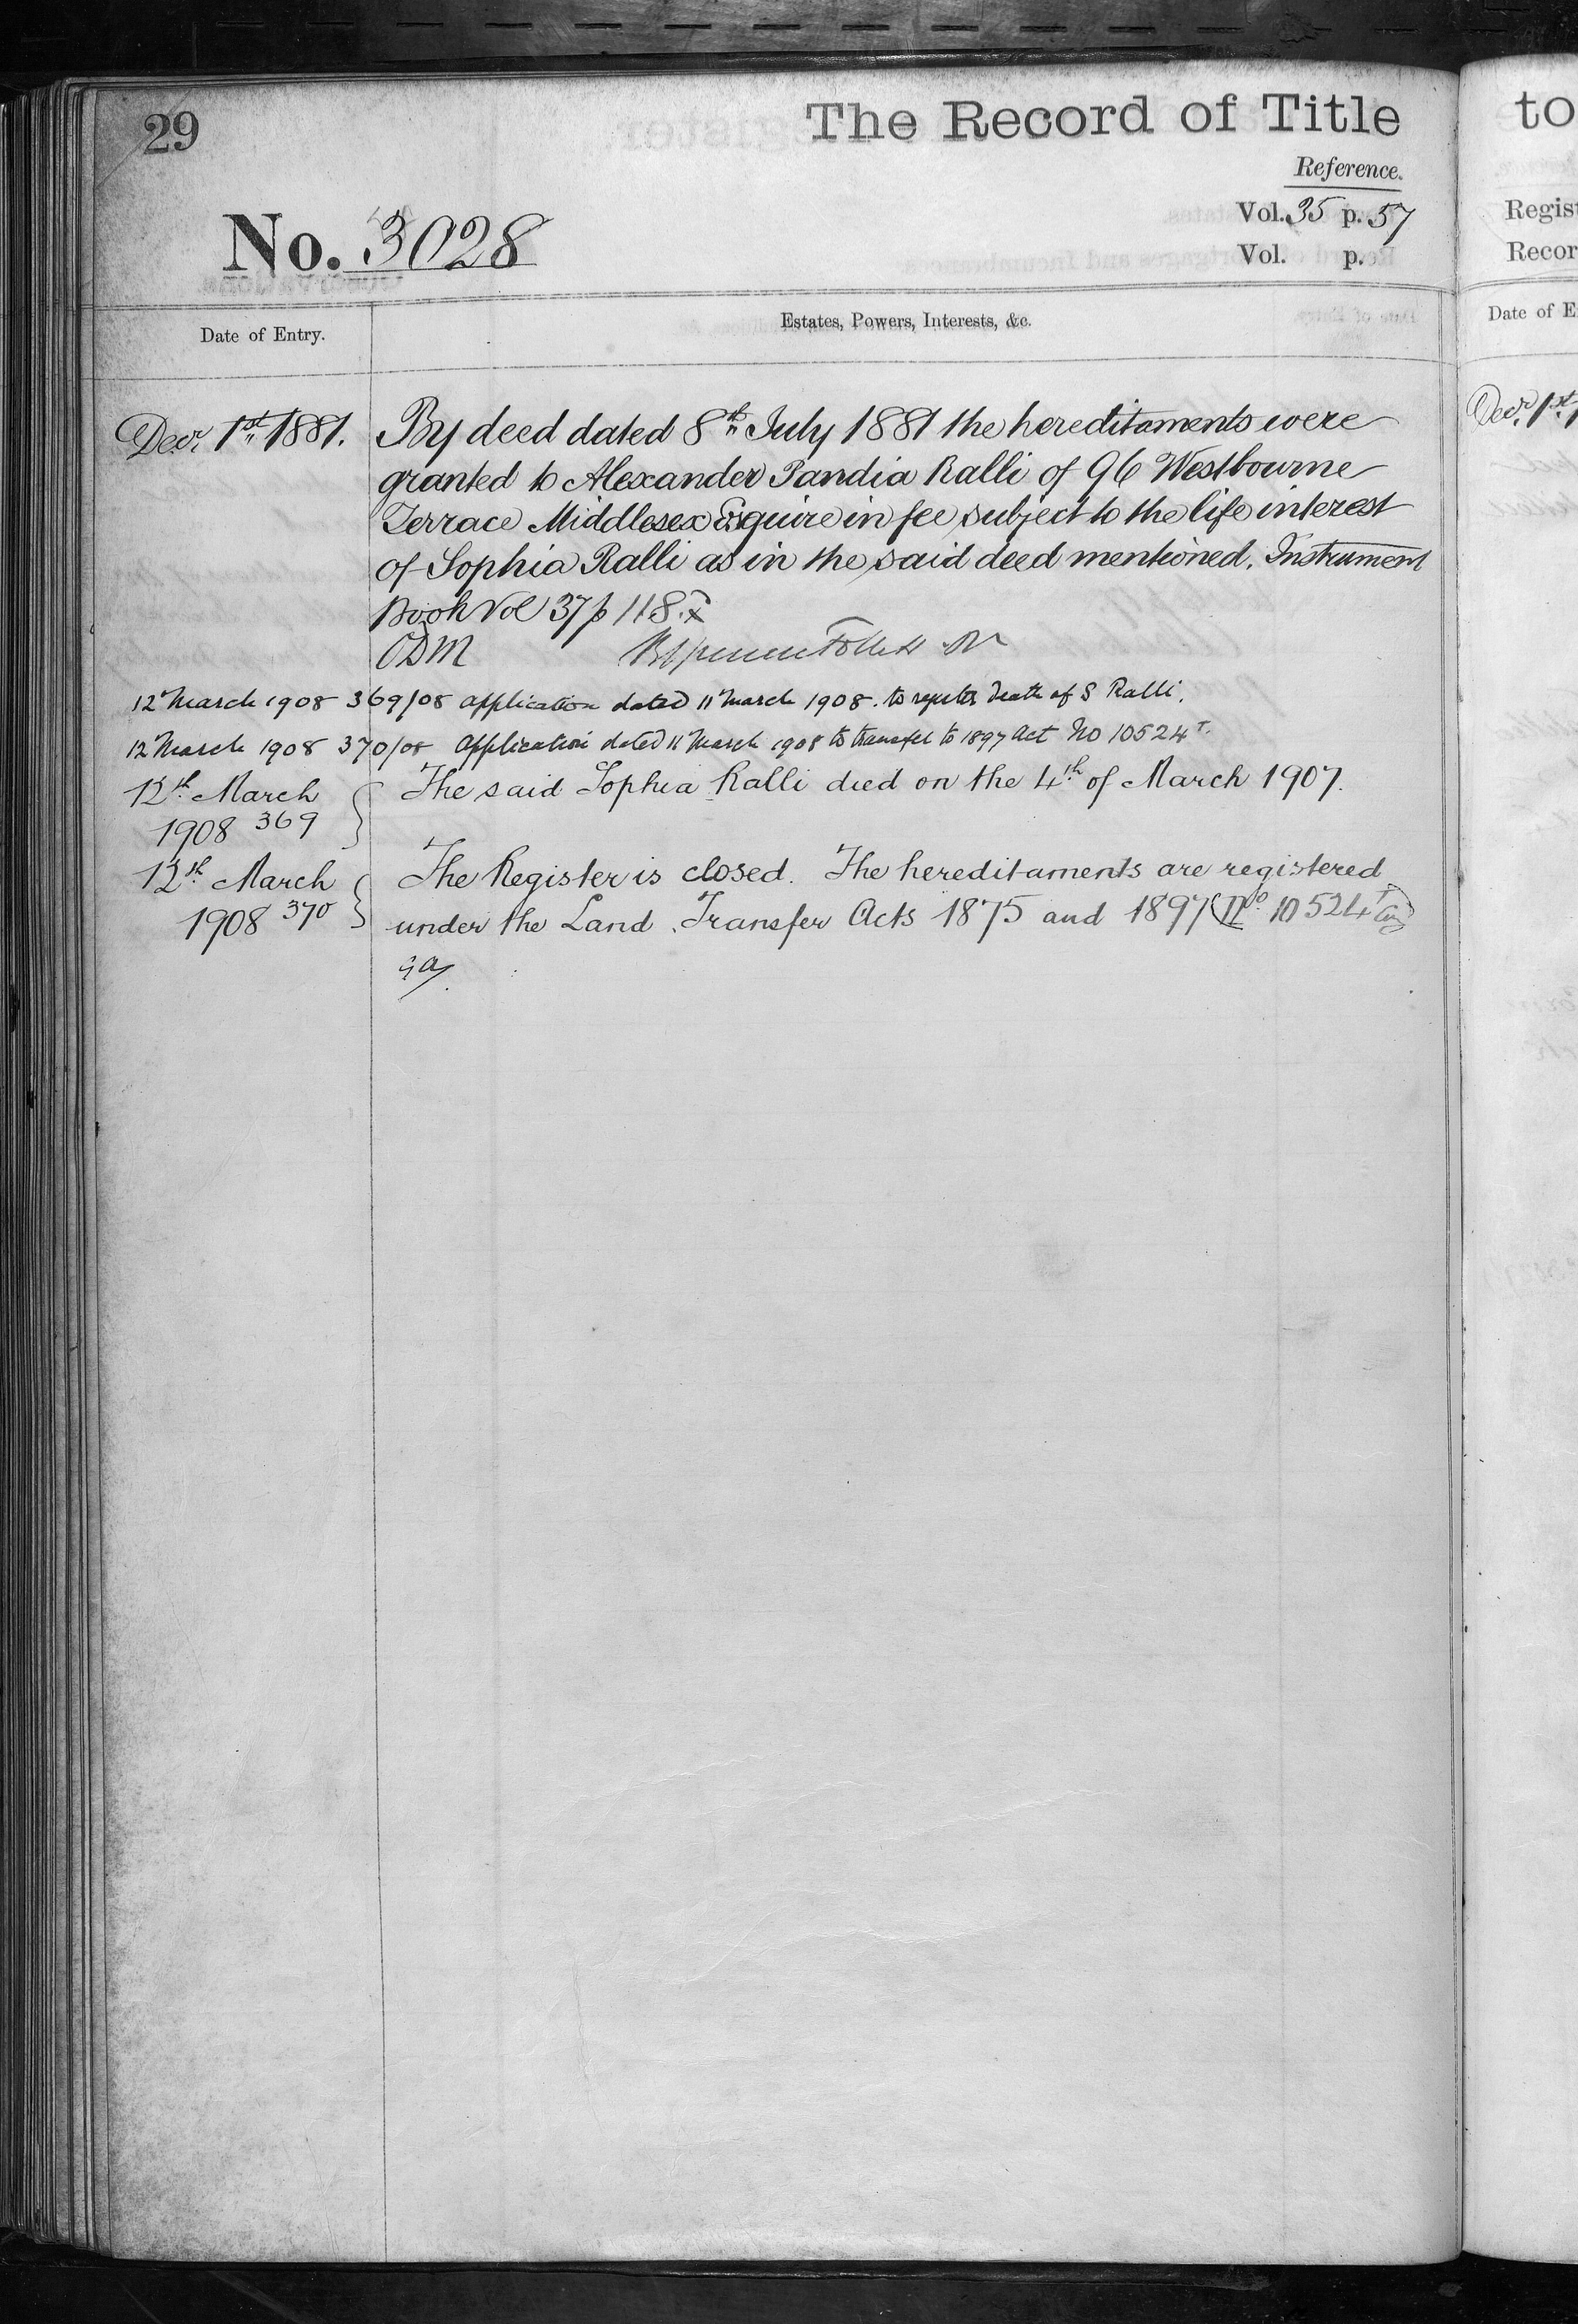 29
The Record of Title
Reference.
Vol. 35 p. 57
No. 3028
Vol. p.
Date of Entry.
Estates, Powers, Interests, &c.
Decr. 1st 1881. By deed dated 8th July 1881 the hereditaments were
granted to Alexander Pandia Ralli of 96 Westbourne
Terrace Middlesex Esquire in fee subject to the life interest
of Sophia Ralli as in the said deed mentioned. Instrument
Book Vol 37 p 118.
ODM
12 March 1908 369/08 application dated 11 March 1908. to register death of S Ralli.
12 March 1908 370/08 Application dated 11 March 1908 to transfer to 1897 Act No 10524T.
12th March The said Sophia Ralli died on the 4th of March 1907.
1908 369
12th March The Register is closed. The hereditaments are registered
1908 370 under the Land Transfer Acts 1875 and 1897 (No 10524T
to
Regist
Recor
Date of E
Decr. 1st 1